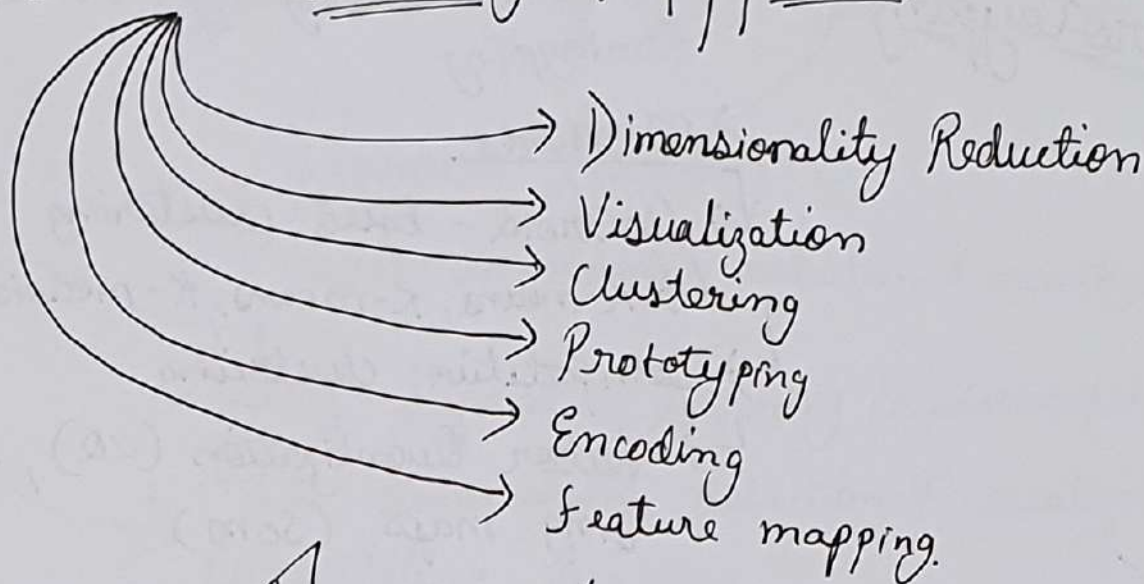 Dimensionality Reduction
Visualization
Clustering
Prototyping
Encoding
feature mapping.